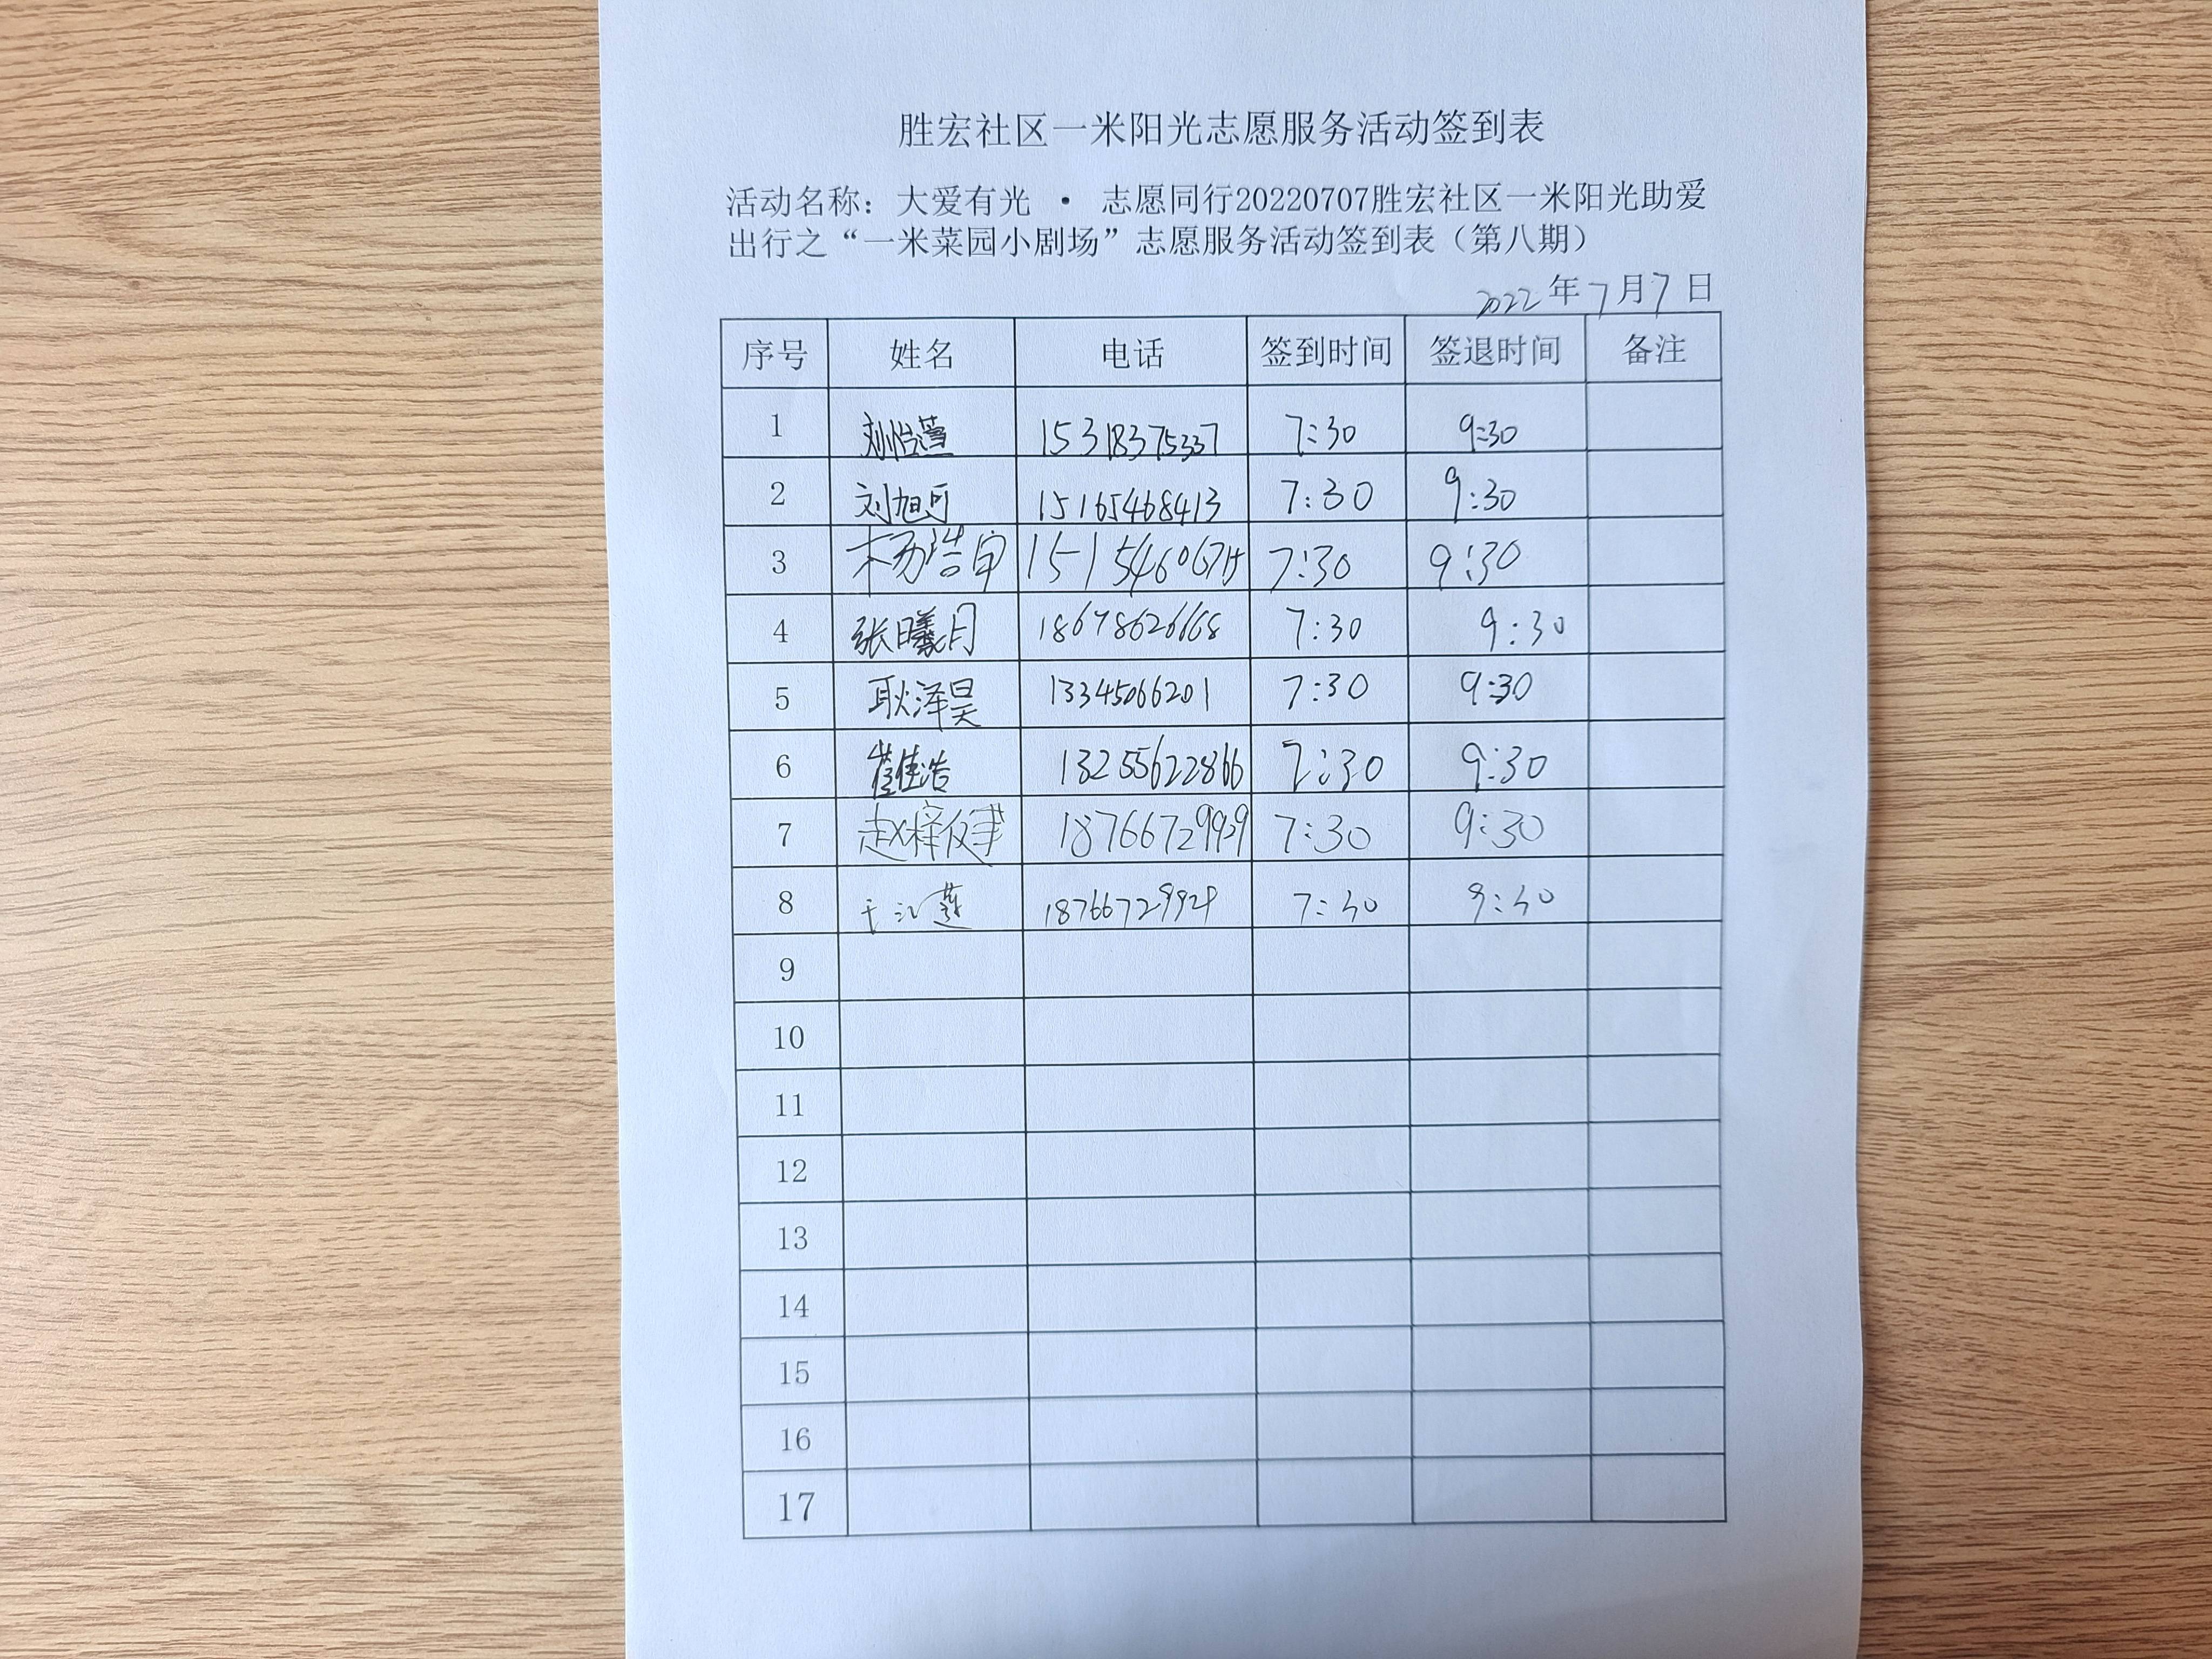 胜宏社区一米阳光志愿服务活动签到表
活动名称：大爱有光 · 志愿同行20220707胜宏社区一米阳光助爱
出行之“一米菜园小剧场”志愿服务活动签到表（第八期）
2022年7月7日
序号 姓名 电话 签到时间 签退时间 备注
1 刘怡萱 15318375337 7:30 9:30
2 刘旭可 15165468413 7:30 9:30
3 杨浩宇 7:30 9:30
4 张曦月 18678626668 7:30 9:30
5 耿泽昊 13345066201 7:30 9:30
6 崔佳浩 13255622866 7:30 9:30
7 赵梓 18766729929 7:30 9:30
8 18766729929 7:30 9:30
9
10
11
12
13
14
15
16
17